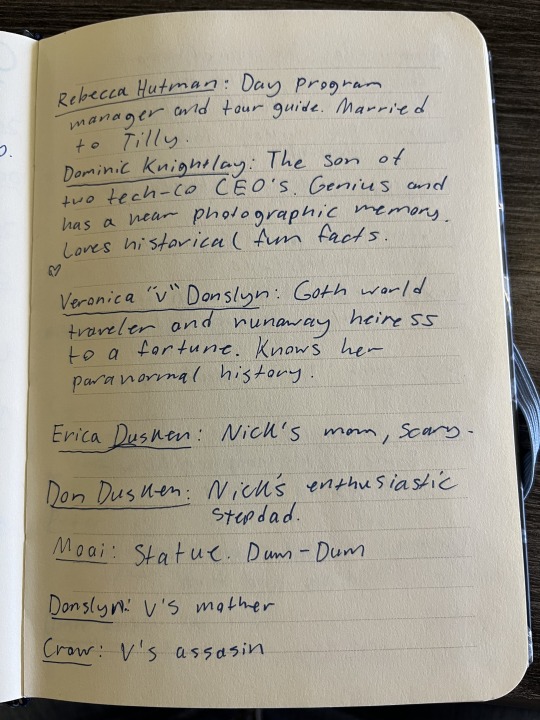 Rebecca Hutman: Day program
manager and tour guide. Married
to Tilly.
Dominic Knightlay: The son of
two tech-co CEO's. Genius and
has a near photographic memory.
Loves historical fun facts.
Veronica "V" Donslyn: Goth world
traveler and runaway heiress
to a fortune. Knows her
paranormal history.
Erica Dusken: Nick's mom, scary.
Don Dusken: Nick's enthusiastic
stepdad.
Moai: Statue. Dum-Dum
Donslyn: V's mother
Crow: V's assasin